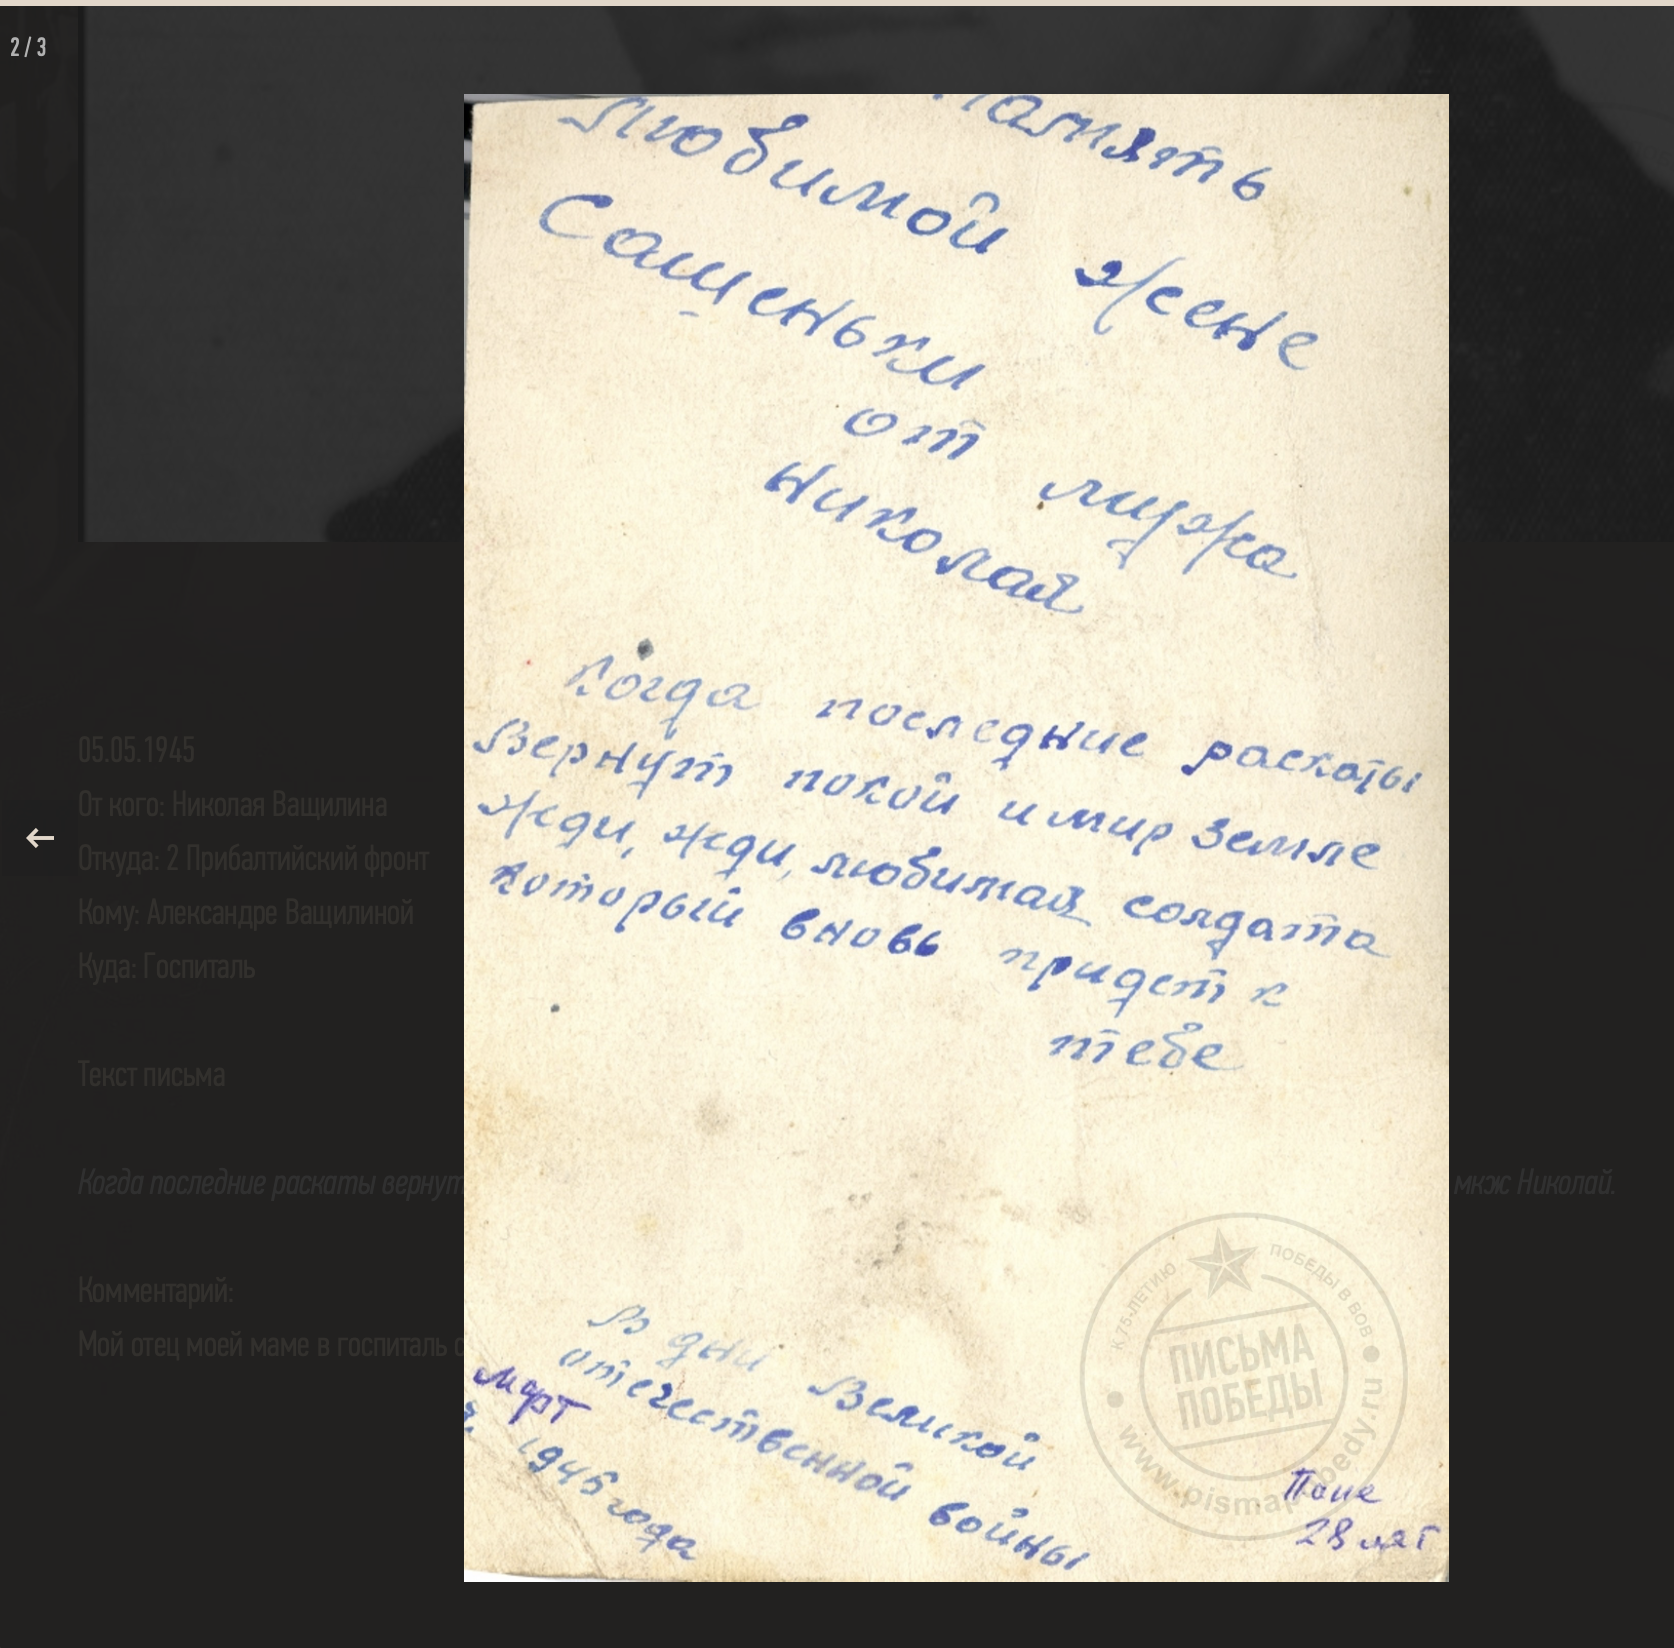 2 / 3
Память
Любимой жене
Сашеньки
от мужа
Николая
Когда последние раскаты
Вернут покой и мир земле
Жди, жди, любимая солдата
Который вновь придет к
тебе
В дни Великой
отечественной войны
март
1945 года
Папе
28 лет
К 75-ЛЕТИЮ ПОБЕДЫ В ВОВ
ПИСЬМА
ПОБЕДЫ
www.pismapobedy.ru
05.05.1945
От кого: Николая Ващилина
Откуда: 2 Прибалтийский фронт
Кому: Александре Ващилиной
Куда: Госпиталь
Текст письма
Когда последние раскаты вернут
мкж Николай.
Комментарий:
Мой отец моей маме в госпиталь